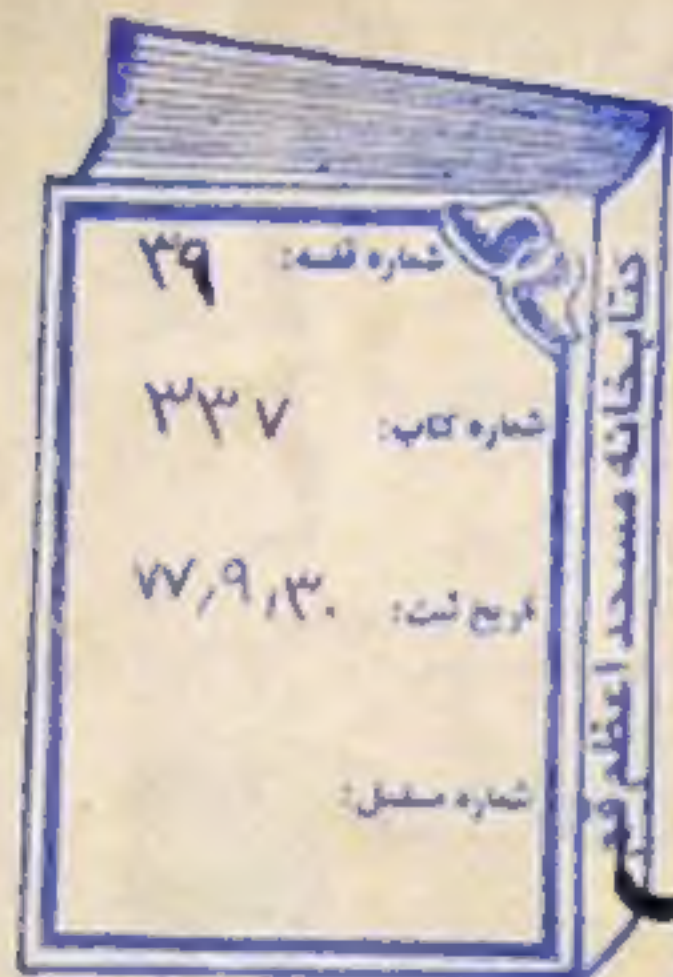 شماره قفسه: ۳۹
شماره کتاب: ۳۳۷
تاریخ ثبت: ۷۷,۹,۳۰
شماره مسلسل:
کتابخانه مسجد اعظم قم